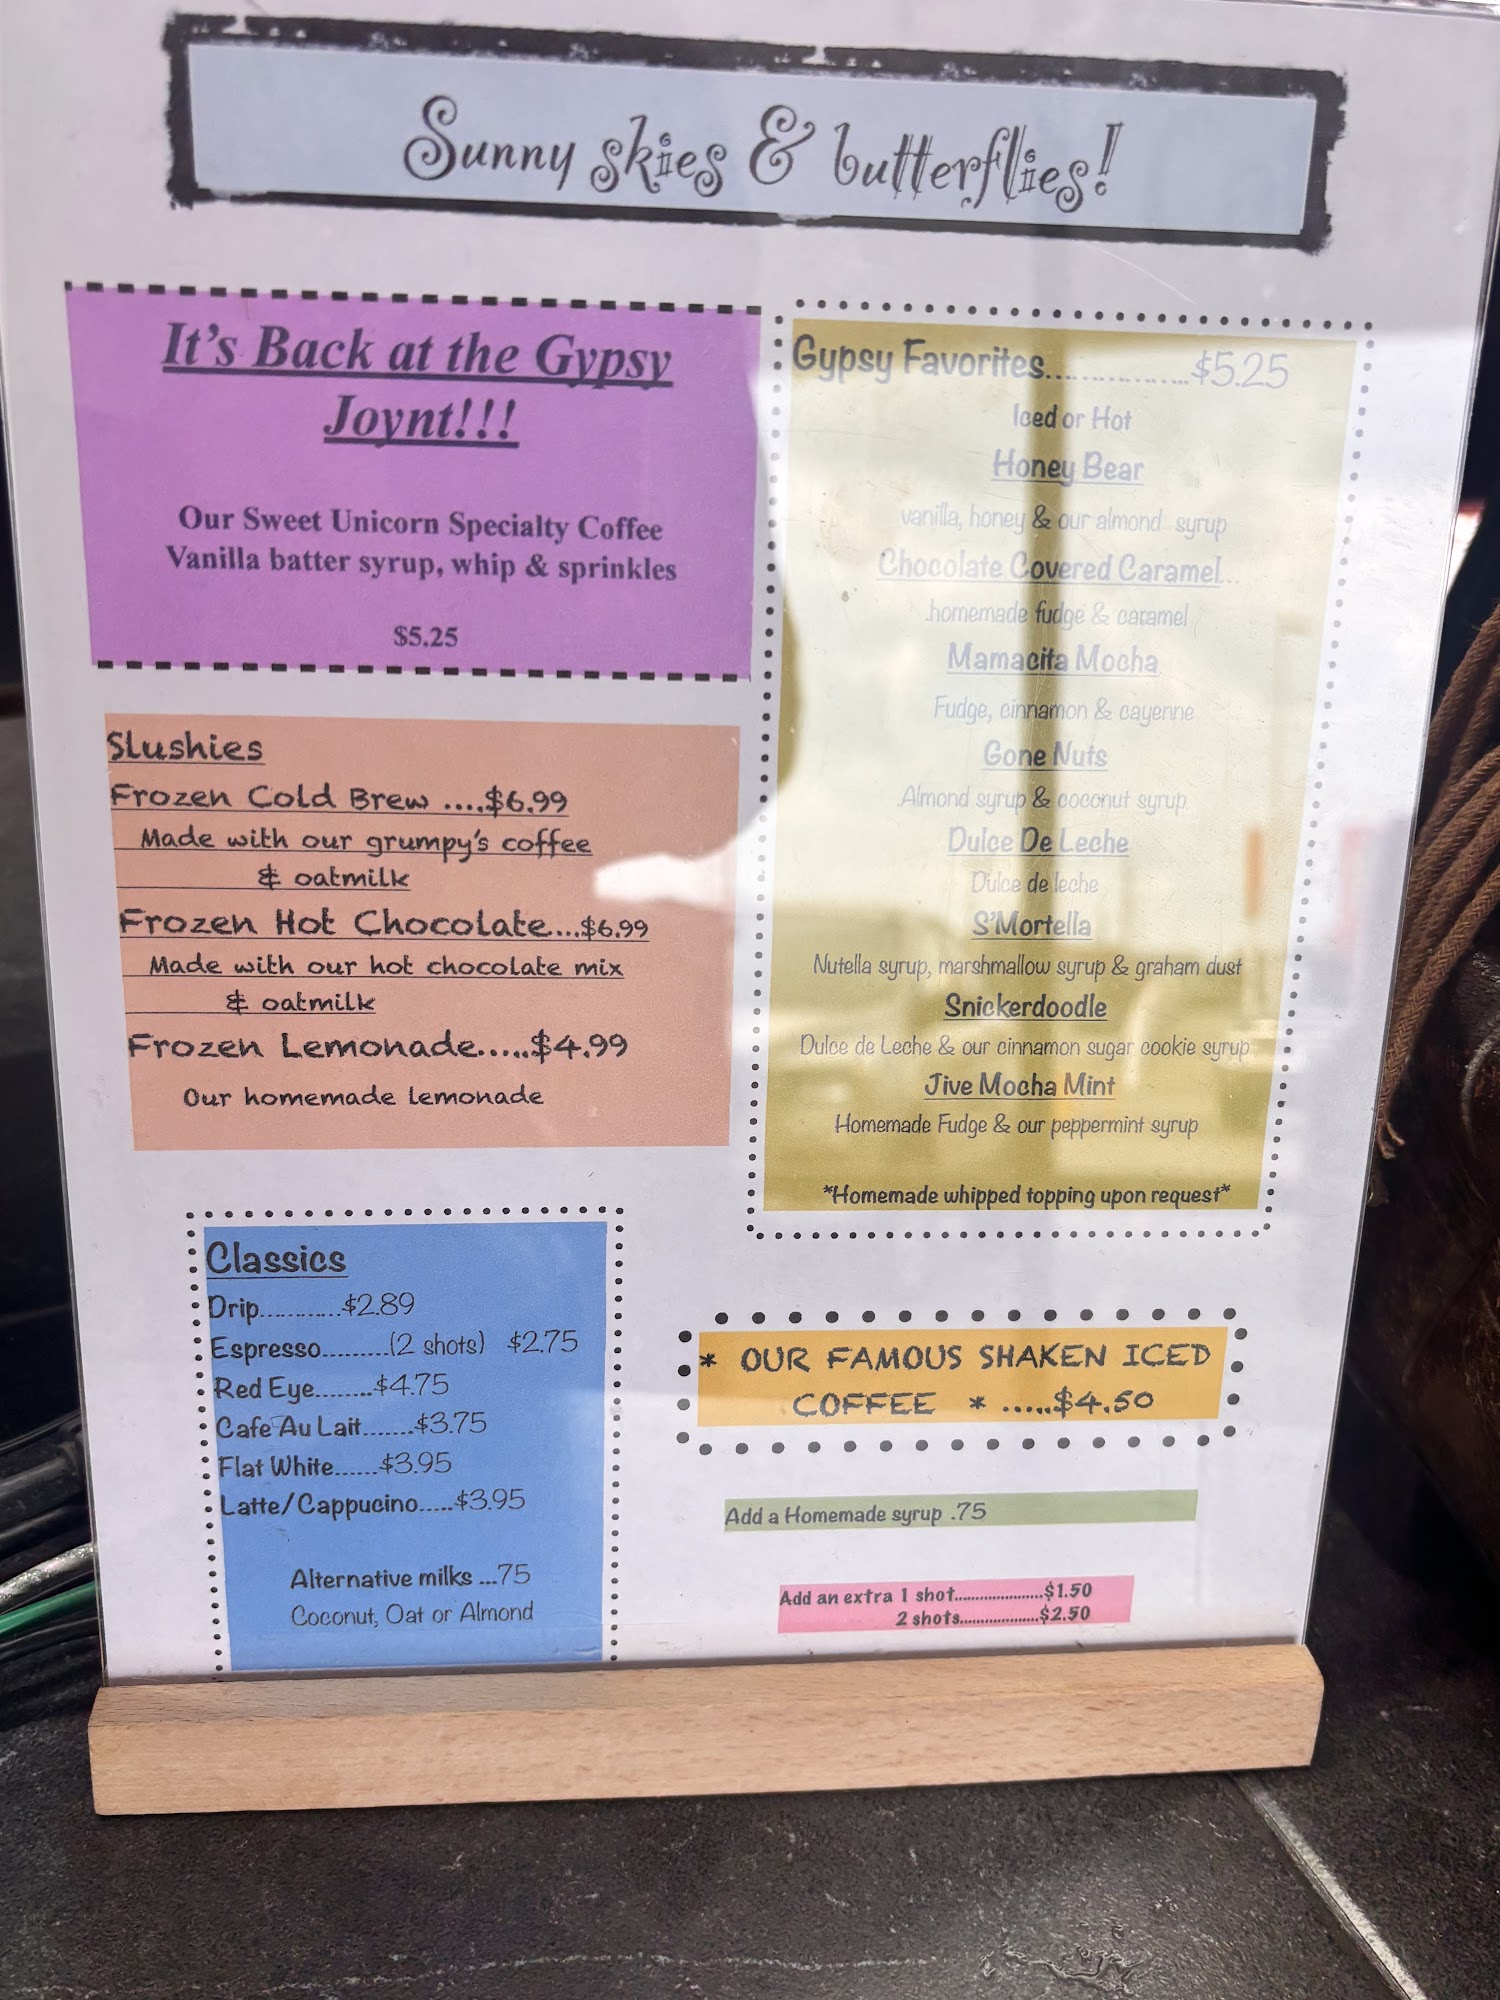 Sunny skies & butterflies!
It's Back at the Gypsy
Joynt!!!
Our Sweet Unicorn Specialty Coffee
Vanilla batter syrup, whip & sprinkles
$5.25
Slushies
Frozen Cold Brew ....$6.99
Made with our grumpy's coffee
& oatmilk
Frozen Hot Chocolate...$6.99
Made with our hot chocolate mix
& oatmilk
Frozen Lemonade.....$4.99
Our homemade lemonade
Classics
Drip............$2.89
Espresso.........(2 shots) $2.75
Red Eye........$4.75
Cafe Au Lait.......$3.75
Flat White......$3.95
Latte/Cappucino.....$3.95
Alternative milks ...75
Coconut, Oat or Almond
Gypsy Favorites.................$5.25
Iced or Hot
Honey Bear
vanilla, honey & our almond syrup
Chocolate Covered Caramel...
.homemade fudge & caramel
Mamacita Mocha
Fudge, cinnamon & cayenne
Gone Nuts
.Almond syrup & coconut syrup
Dulce De Leche
Dulce de leche
S'Mortella
Nutella syrup, marshmallow syrup & graham dust
Snickerdoodle
Dulce de Leche & our cinnamon sugar cookie syrup
Jive Mocha Mint
Homemade Fudge & our peppermint syrup
*Homemade whipped topping upon request*
* OUR FAMOUS SHAKEN ICED
COFFEE * .....$4.50
Add a Homemade syrup .75
Add an extra 1 shot......................$1.50
2 shots....................$2.50